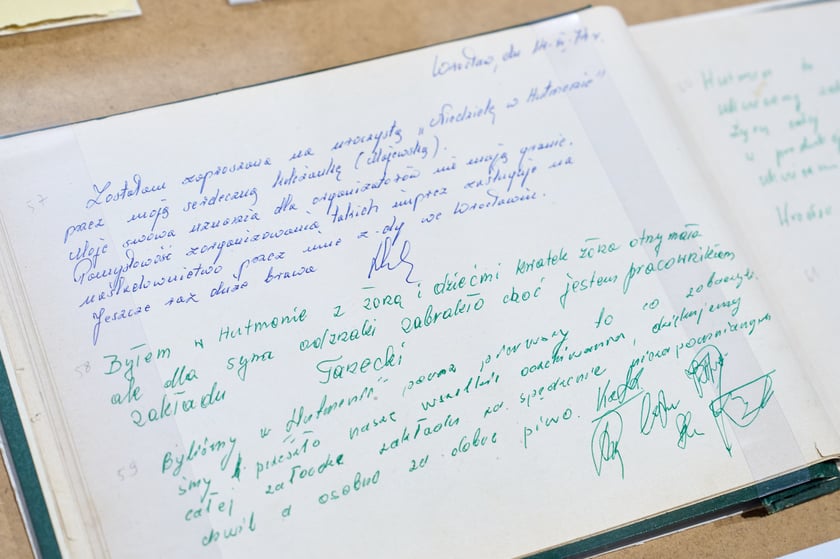 Wrocław, dn.
57
Zostałam zaproszona na uroczystą „Niedzielę w Hutmenie”
przez moją serdeczną koleżankę (Majewską).
Moje słowa uznania dla organizatorów nie mają granic.
Pomysłowość zorganizowania takich imprez zasługuje na
naśladownictwo przez inne z-dy we Wrocławiu.
Jeszcze raz duże brawa
58 Byłem w Hutmenie z żoną i dziećmi kwiatek żona otrzymała
ale dla syna odznaki zabrakło choć jestem pracownikiem
zakładu Tarecki
59 Byliśmy w „Hutmenie” pierwszy to co zobaczyli
śmy przeszło nasze wszelkie oczekiwania, dziękujemy
całej załodze zakładu za spędzenie
chwil a osobno za dobre piwo.
Hutmen